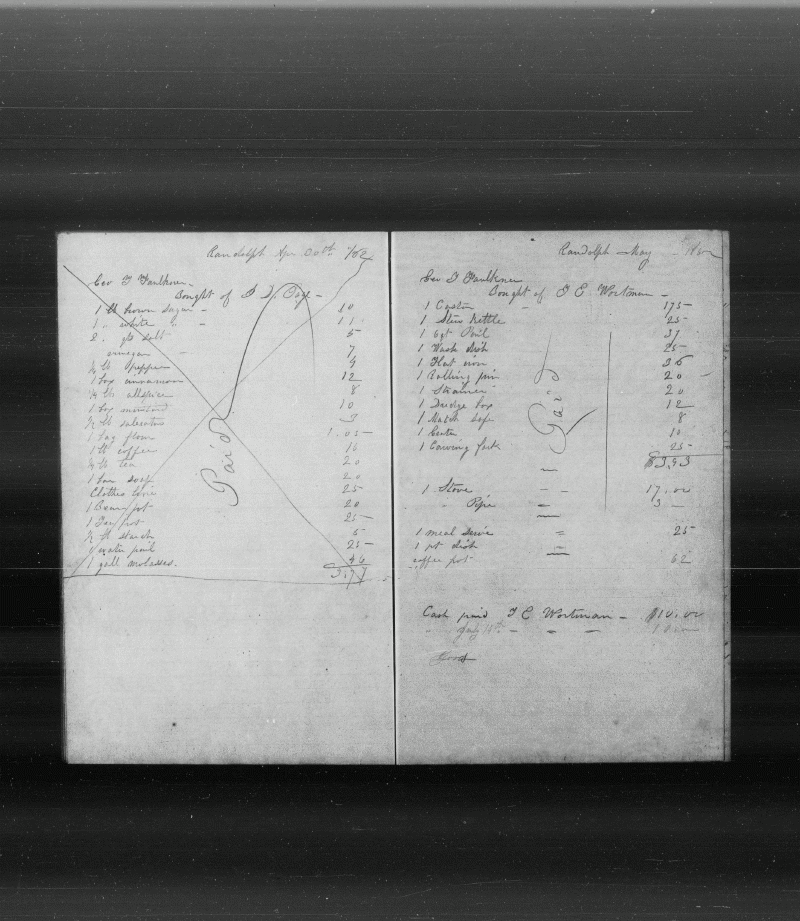 Randolph Apr 30th /62
Geo T Faulkner
Bought of
1 lb brown Sugar 10
1 " white " 11
2 qts salt 5
vinegar 7
1/4 lb pepper 9
1 box cinnamon 12
1/4 lb allspice 8
1 box mustard 10
1/2 lb saleratus 3
1 bag flour 1.05
1 lb coffee
1/4 lb tea 20
1 bar soap 20
Clothes line 25
1 Bean pot 20
1 Tea pot 25
1/2 lb starch 5
1 water pail 25
1 gall molasses. 46
Paid
Randolph May 1862
Geo T Faulkner
Bought of T E Wortman
1 Castor 175
1 Stew Kettle 25
1 6qt Pail 37
1 Wash dish 25
1 Flat iron 36
1 Rolling pin 20
1 Strainer 20
1 Dredge box 12
1 Match safe 8
1 Grater 10
1 Carving fork 25
$3.93
Paid
1 Stove 17.00
" Pipe 3
1 meal sieve 25
1 pt dish
coffee pot 62
Cash paid T E Wortman $10.00
" July